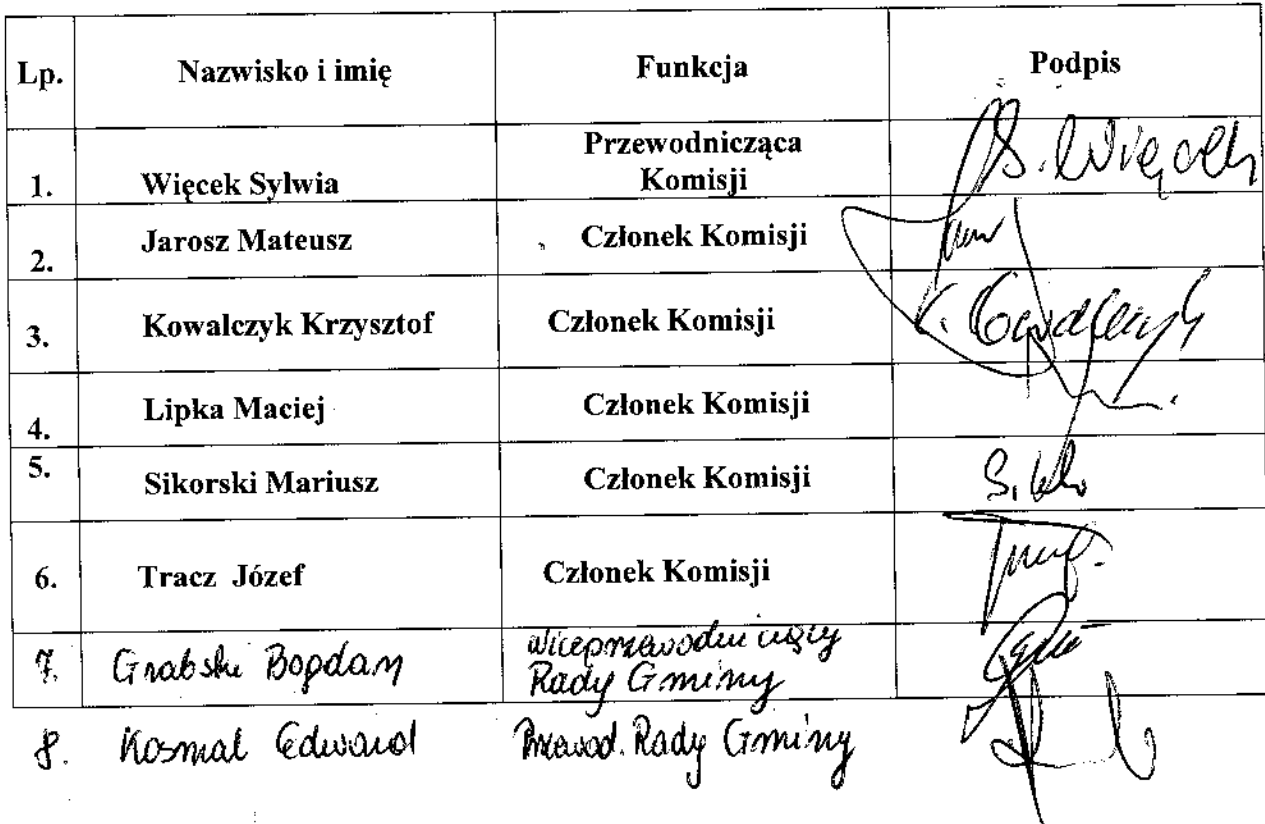 Lp. Nazwisko i imię Funkcja Podpis
1. Więcek Sylwia Przewodnicząca Komisji S. Więcek
2. Jarosz Mateusz Członek Komisji
3. Kowalczyk Krzysztof Członek Komisji K. Kowalczyk
4. Lipka Maciej Członek Komisji
5. Sikorski Mariusz Członek Komisji
6. Tracz Józef Członek Komisji
7. Grabski Bogdan Wiceprzewodniczący Rady Gminy
8. Kosmal Edward Przewod. Rady Gminy